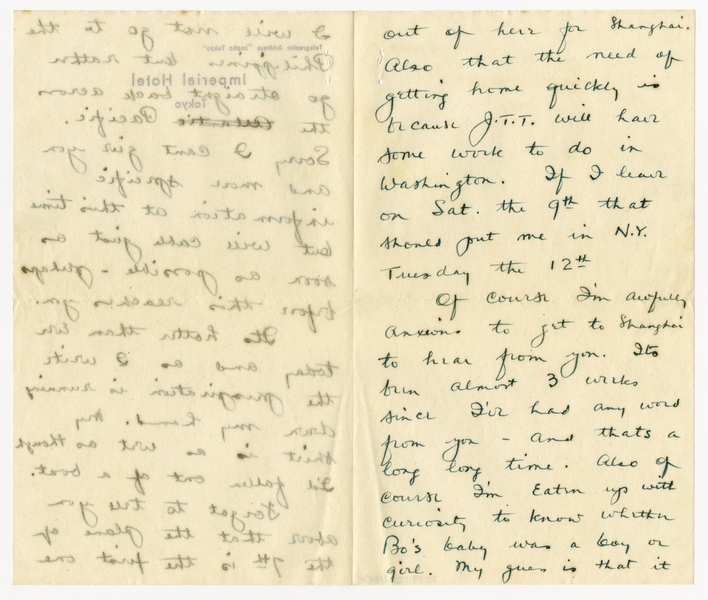 I will not go to the
Telegraphic Address "Impho Tokyo"
Philippines but rather
Imperial Hotel
go straight back across
Tokyo
the Pacific.
Sorry I cant give you
and more specific
information at this time
but will cable just as
soon as possible - perhaps
before this reaches you.
Its hotter than ever
today and as I write
the perspiration is running
down my hand. My
shirt is as wet as though
I'd fallen out of a boat.
Forgot to tell you
above that the plane of
the 7th is the first one
out of here for Shanghai.
Also that the need of
getting home quickly is
because J.T.T. will have
some work to do in
Washington. If I leave
on Sat. the 9th that
should put me in N.Y.
Tuesday the 12th
Of course I'm awfully
anxious to get to Shanghai
to hear from you. Its
been almost 3 weeks
since I've had any word
from you - and thats a
long long time. Also of
course I'm eaten up with
curiosity to know whether
Bo's baby was a boy or
girl. My guess is that it